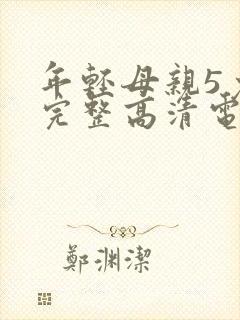 年輕母親5
完整高清電
鄭淵潔